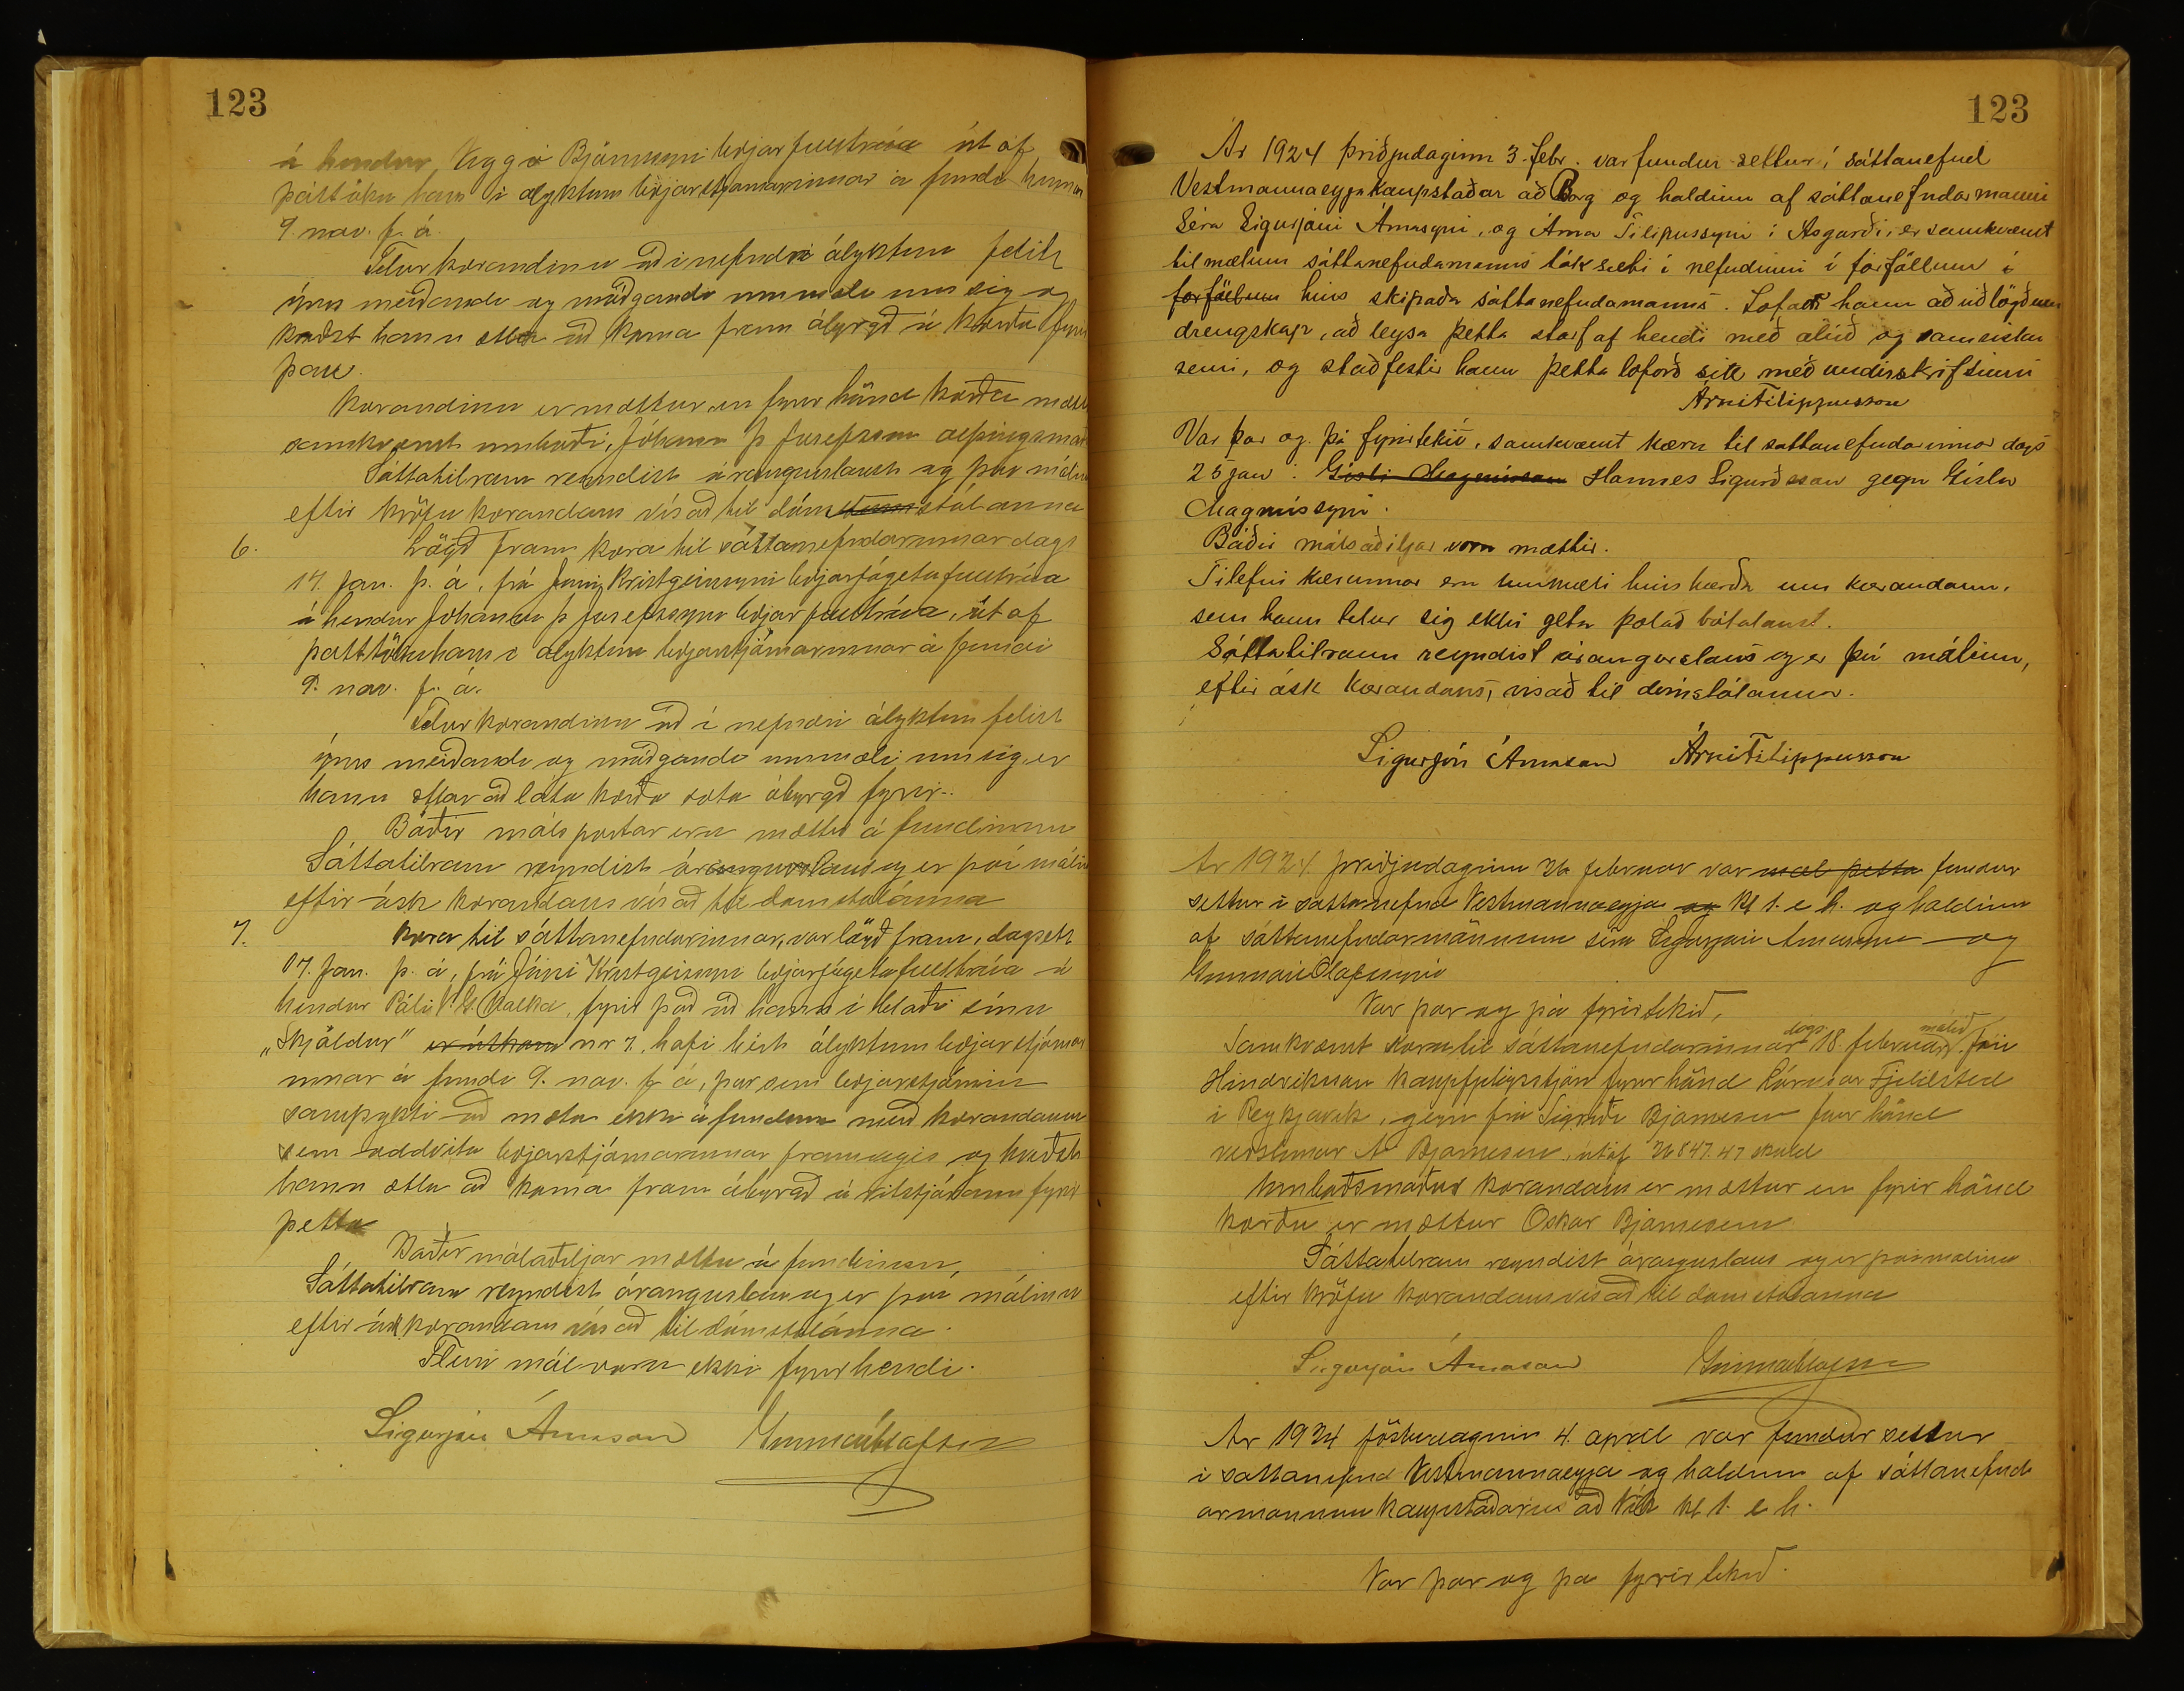 123
á hendur Viggó Björnssyni bæjarfulltrúa út af
þátttöku hans í ályktun bæjarstjórnarinnar á fundi hennar
9. nóv. f. á.
Telur kærandinn að í nefndri ályktun felist
ýms meiðandi og móðgandi ummæli um sig og
kveðst hann ætla að koma fram ábyrgð á kærða fyrir
þau.
Kærandinn er mættur en fyrir hönd kærða mætti
samkvæmt umboði, Jóhann Þ Jósefsson alþingismað
Sáttatilraun reyndist árangurslaus og því málinu
eftir kröfu kærandans vísað til dómstólanna
6. Lögð fram kæra til sáttanefndarinnar dags
17. jan. þ. á, frá Jóni Kristgeirssyni bæjarfógetafulltrúa
á hendur Jóhanni Þ Jósefssyni bæjarfulltrúa, út af
þátttöku hans í ályktun bæjarstjórnarinnar á fundi
9. nóv. f. á.
Telur kærandinn að í nefndri ályktun felist
ýms meiðandi og móðgandi ummæli um sig, er
hann ætlar að láta kærða sæta ábyrgð fyrir.
Báðir málspartar eru mættir á fundinum
Sáttatilraun reyndist árangurslaus og er því málinu
eftir ósk kærandans vísað til dómstólanna
7. Kæra til sáttanefndarinnar, var lögð fram, dagsett
17. jan. þ. á, frá Jóni Kristgeirssyni bæjarfógetafulltrúa á
hendur Páli V. G. Kolka, fyrir það að hann í blaði sínu
„Skjöldur" er útkom nr 7, hafi birt ályktun bæjarstjórnar
innar á fundi 9. nóv. f á, þar sem bæjarstjórnin
samþykti að mæta ekki á fundum með kærandanum
sem oddvita bæjarstjórnarinnar framvegis og kveðst
hann ætla að koma fram ábyrgð á ritstjórann fyrir
þetta
Báðir málsaðiljar mættu á fundinum,
Sáttatilraun reyndist árangurslaus og er því málinu
eftir ósk kærandans vísað til dómstólanna.
Fleiri mál voru ekki fyrir hendi.
Sigurjón Árnason Gunnar Ólafsson
123
Ár 1924 þriðjudaginn 3. febr. var fundur settur í sáttanefnd
Vestmannaeyjakaupstaðar að Borg og haldinn af sáttanefndarmanni
Séra Sigurjóni Árnasyni, og Árna Filipussyni í Ásgarði, er samkvæmt
tilmælum sáttanefndamanns tók sæti í nefndinni í forföllum í
forföllum hins skipaða sáttanefndamanns. Lofaði hann að viðlögðum
drengskap, að leysa þetta starf af hendi með alúð og samvisku
semi, og staðfestir hann þetta loforð sitt með undirskrift sinni
Árni Filippusson
Var þar og þá fyrirtekið, samkvæmt kæru til sáttanefndarinnar dags
25 jan: Gísli Magnússon Hannes Sigurðsson gegn Gísla
Magnússyni.
Báðir málsaðiljar voru mættir.
Tilefni kærunnar eru ummæli hins kærða um kærandann,
sem hann telur sig ekki geta þolað bótalaust.
Sáttatilraun reyndist árangurslaus og er því málinu,
eftir ósk kærandans, vísað til dómstólanna.
Sigurjón Árnason Árni Filippusson
Ár 1924 þriðjudaginn 26 februar var mæl þetta fundur
settur í sáttanefnd Vestmannaeyja og Kl 1. e h. og haldinn
af sáttanefndarmönnum séra Sigurjóni Árnasyni og
Gunnari Ólafssyni
Var þar og þá fyrirtekið,
Samkvæmt kæru til sáttanefndarinnar dags. 18. februar, málið Jón
Hinriksson kaupfjelagsstjóri fyrir hönd Lárusar Fjeldsted
í Reykjavík, gegn frú Sigríði Bjarnasen fyrir hönd
verslunar A Bjarnasen, útaf 26847.47 skuld
Umboðsmaður kærandans er mættur en fyrir hönd
kærðu er mættur Óskar Bjarnasen
Sáttatilraun reyndist árangurslaus og er því málinu
eftir kröfu kærandans vísað til dómstólanna
Sigurjón Árnason Gunnar Ólafsson
Ár 1924 föstudaginn 4. apríl var fundur settur
í sáttanefnd Vestmannaeyja og haldinn af sáttanefnd
armönnum kaupstaðarins að Vík kl 1. e h.
Var þar og þá fyrirtekið.